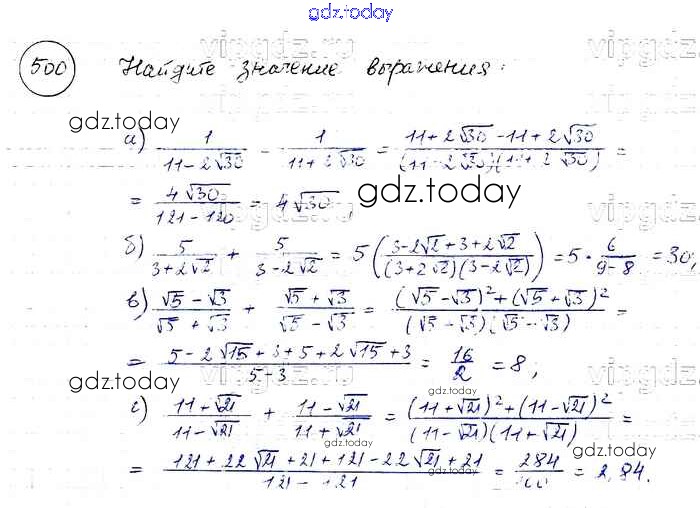 gdz.today
500 Найдите значение выражения:
gdz.today
а) 1/(11-2√30) - 1/(11+2√30) = (11+2√30-11+2√30)/((11-2√30)(11+2√30)) =
= 4√30/(121-120) = 4√30,
gdz.today
б) 5/(3+2√2) + 5/(3-2√2) = 5((3-2√2+3+2√2)/((3+2√2)(3-2√2))) = 5·6/(9-8) = 30,
в) (√5-√3)/(√5+√3) + (√5+√3)/(√5-√3) = ((√5-√3)²+(√5+√3)²)/((√5-√3)(√5-√3)) =
= (5-2√15+3+5+2√15+3)/(5-3) = 16/2 = 8;
gdz.today
gdz.today
г) (11+√21)/(11-√21) + (11-√21)/(11+√21) = ((11+√21)²+(11-√21)²)/((11-√21)(11+√21)) =
gdz.today
= (121+22√21+21+121-22√21+21)/(121-21) = 284/100 = 2,84.
gdz.today